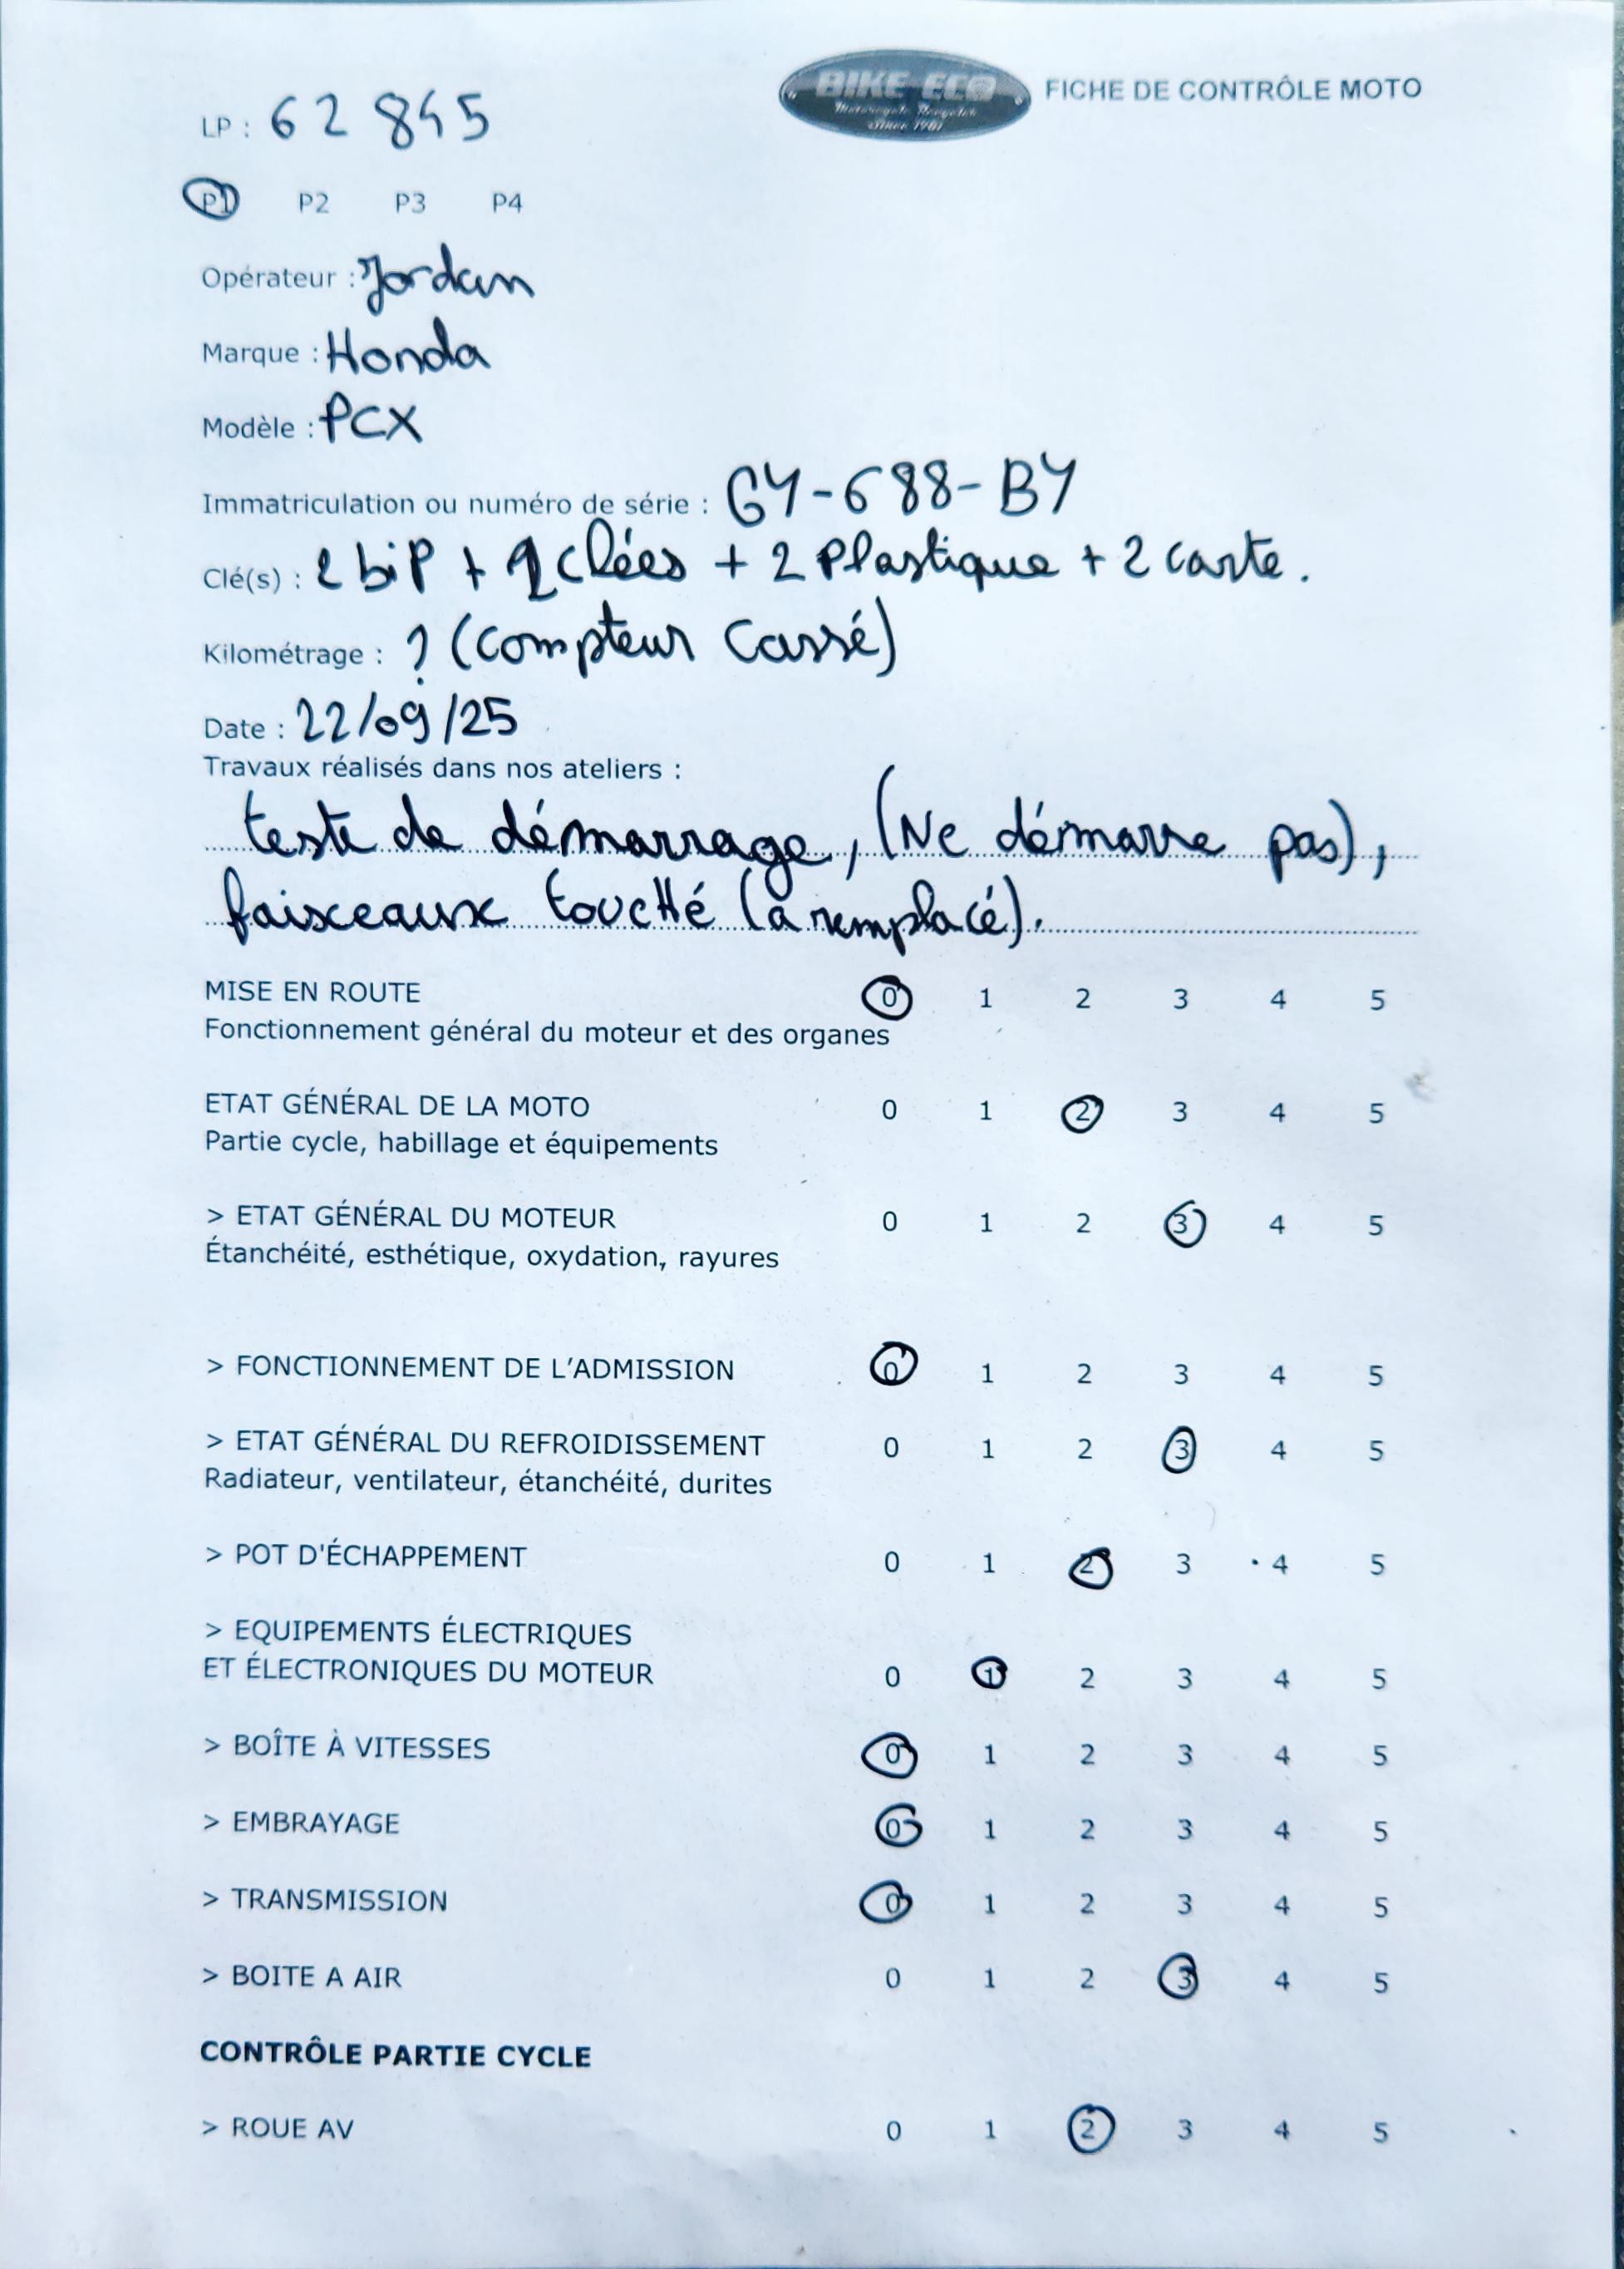 BIKE-ECO
Motorcycle Recycler
Since 1981
FICHE DE CONTRÔLE MOTO
LP : 62845
P1 P2 P3 P4
Opérateur : Jordan
Marque : Honda
Modèle : PCX
Immatriculation ou numéro de série : GY-688-BY
Clé(s) : 2 bip + 2 clées + 2 Plastique + 2 carte.
Kilométrage : ? (Compteur Cassé)
Date : 22/09/25
Travaux réalisés dans nos ateliers :
teste de démarrage, (Ne démarre pas),
faisceaux touché (a remplacé).
MISE EN ROUTE 0 1 2 3 4 5
Fonctionnement général du moteur et des organes
ETAT GÉNÉRAL DE LA MOTO 0 1 2 3 4 5
Partie cycle, habillage et équipements
> ETAT GÉNÉRAL DU MOTEUR 0 1 2 3 4 5
Étanchéité, esthétique, oxydation, rayures
> FONCTIONNEMENT DE L'ADMISSION 0 1 2 3 4 5
> ETAT GÉNÉRAL DU REFROIDISSEMENT 0 1 2 3 4 5
Radiateur, ventilateur, étanchéité, durites
> POT D'ÉCHAPPEMENT 0 1 2 3 4 5
> EQUIPEMENTS ÉLECTRIQUES
ET ÉLECTRONIQUES DU MOTEUR 0 1 2 3 4 5
> BOÎTE À VITESSES 0 1 2 3 4 5
> EMBRAYAGE 0 1 2 3 4 5
> TRANSMISSION 0 1 2 3 4 5
> BOITE A AIR 0 1 2 3 4 5
CONTRÔLE PARTIE CYCLE
> ROUE AV 0 1 2 3 4 5